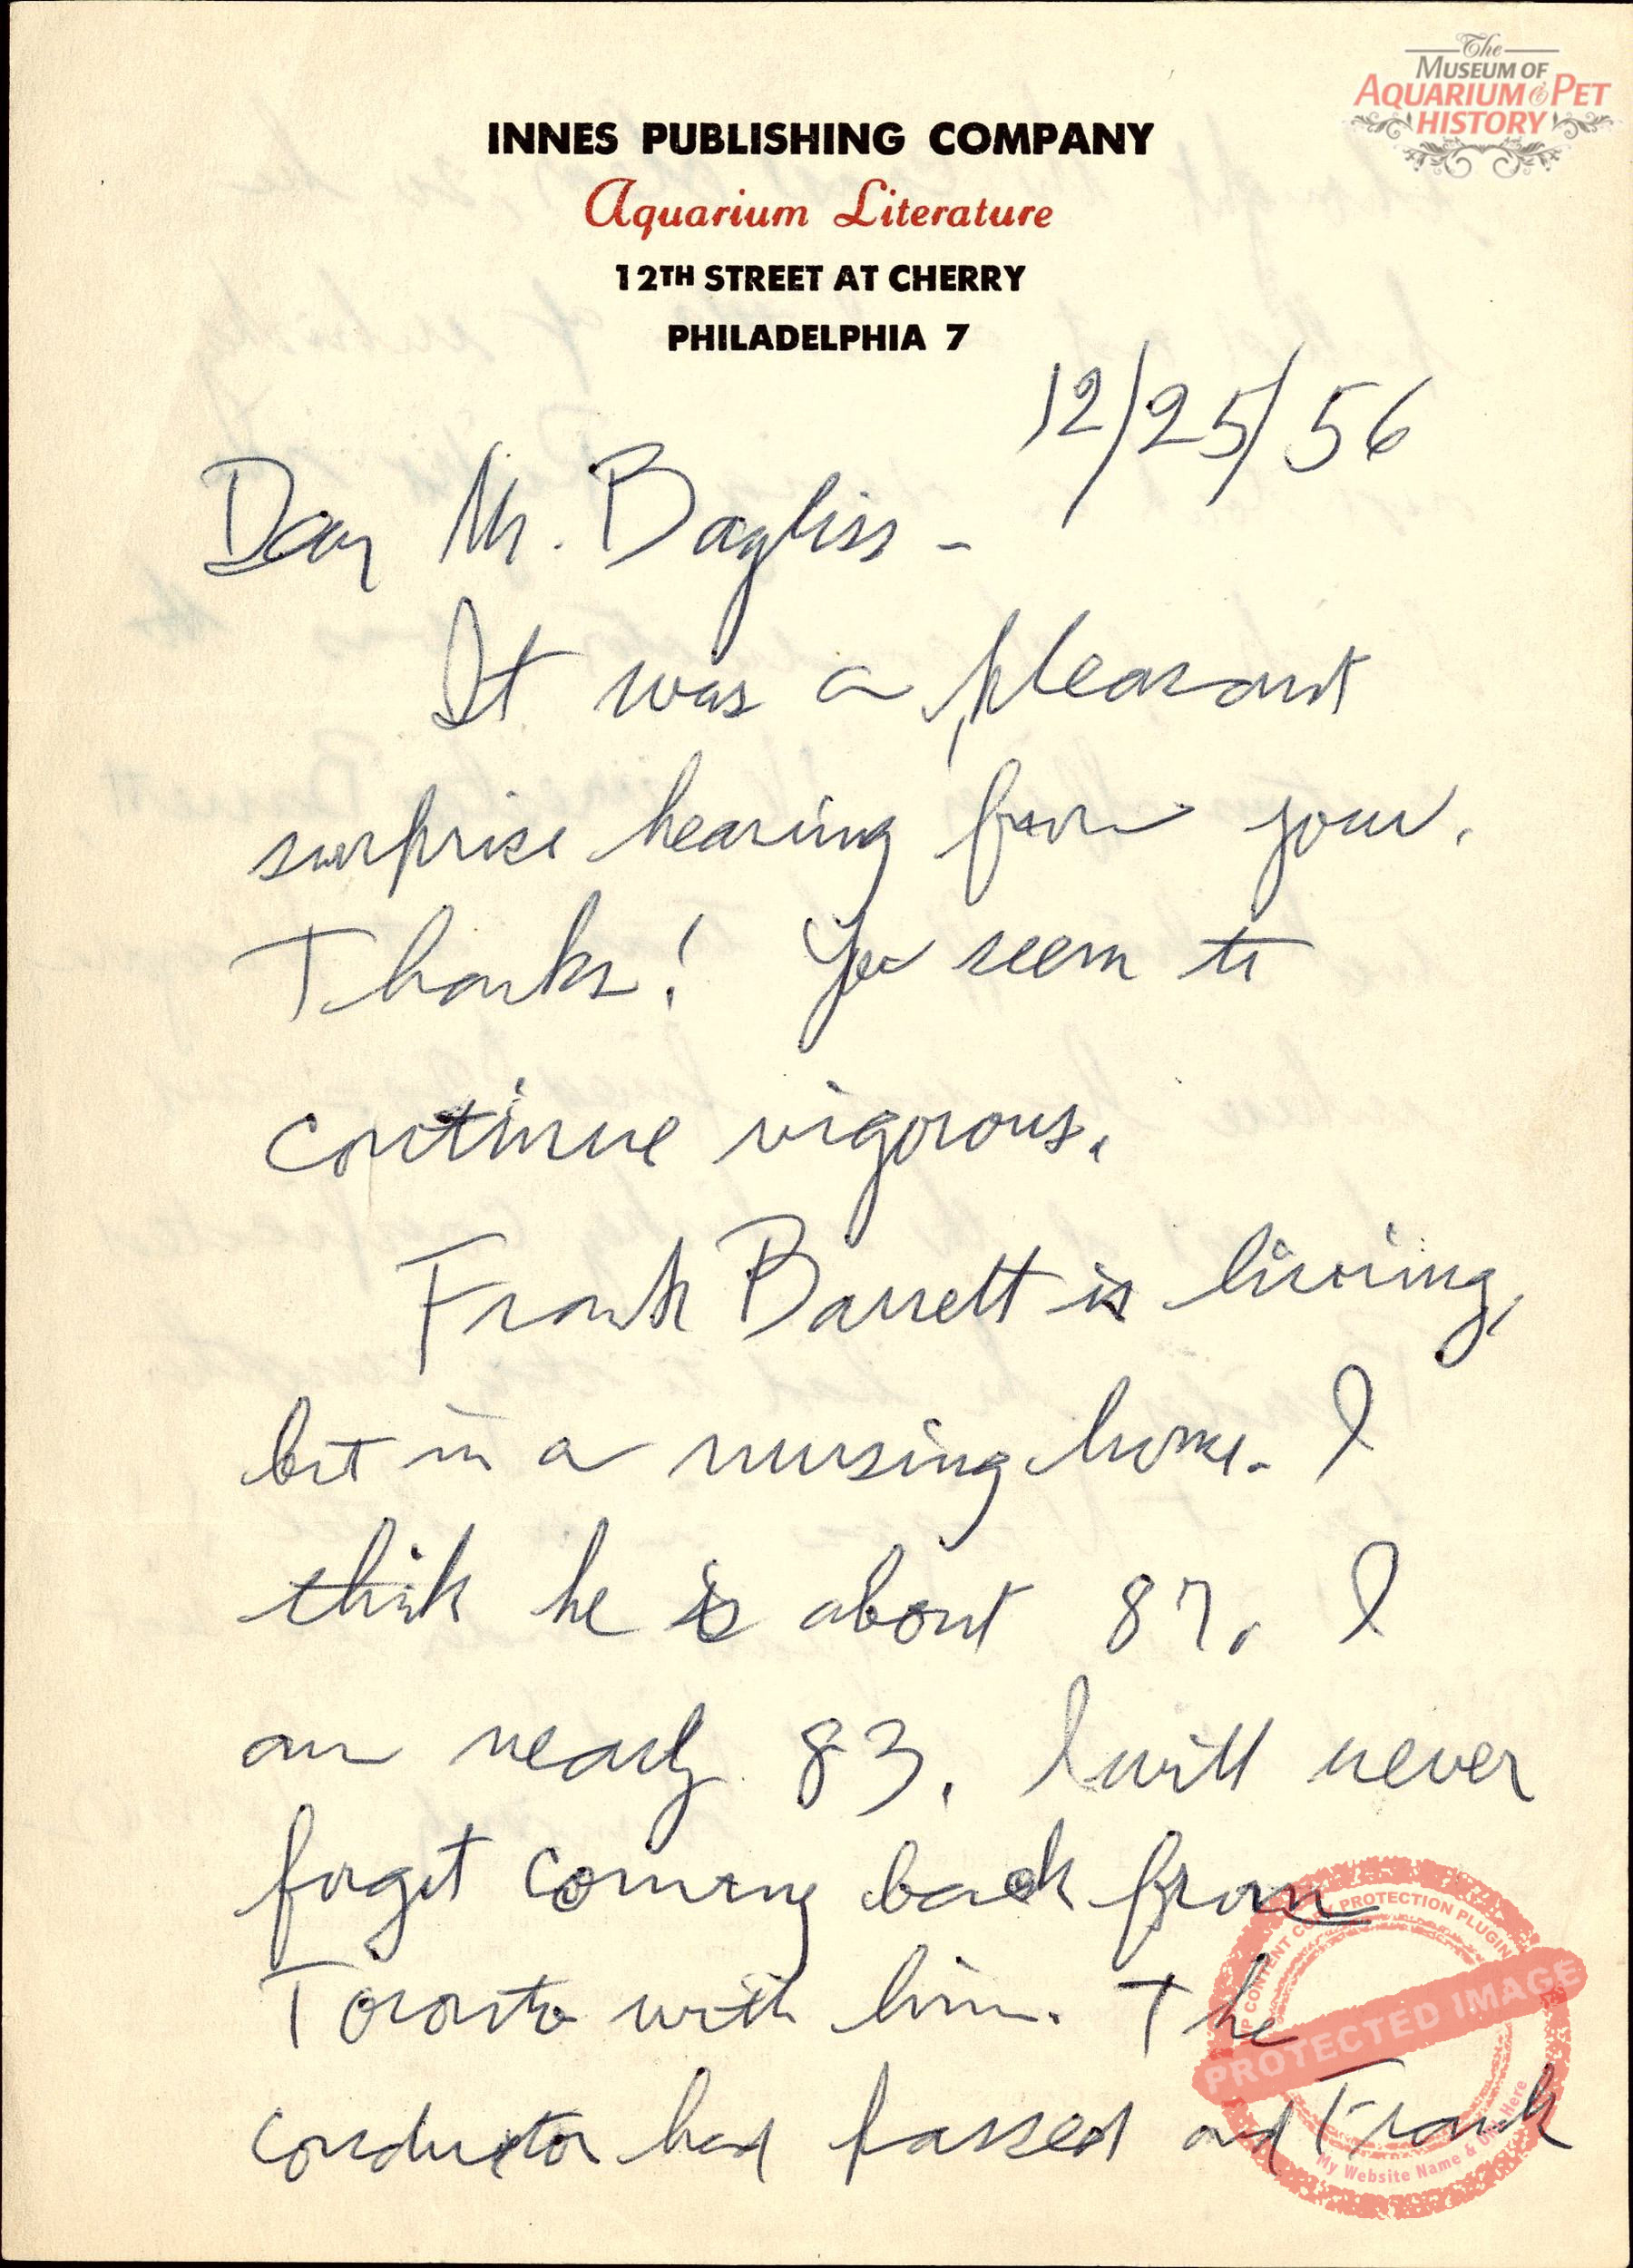 The
MUSEUM OF
AQUARIUM & PET
HISTORY
INNES PUBLISHING COMPANY
Aquarium Literature
12TH STREET AT CHERRY
PHILADELPHIA 7
12/25/56
Dear Mr. Bagliss -
It was a pleasant
surprise hearing from you.
Thanks! You seem to
continue vigorous.
Frank Barrett is living,
but in a nursing home. I
think he is about 87. I
am nearly 83. I will never
forget coming back from
Toronto with him. The
conductor had passed and Frank
WP CONTENT COPY PROTECTION PLUGIN
PROTECTED IMAGE
My Website Name & Url Here